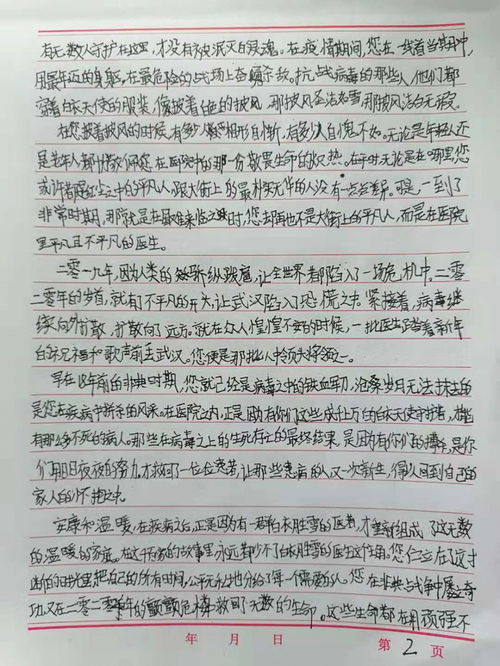 有无数人守护在这里，才没有永泯灭的灵魂。在疫情期间，您在一线首当其冲，
用最年迈的身躯，在最危险的战场上奋勇杀敌。抗战病毒的那些人，他们都
穿着白衣天使的服装，像披着白色的披风，那披风圣洁如雪，那披风洁白无瑕。
在您披着披风的时候，有多少人相形自惭，有多少人自愧不如。无论是年轻人还
是老年人都惊叹您在医院中的那一份敬畏生命的炽热。在平时无论是在哪里，您
或许都是红尘之中的平凡人，跟大街上的最朴实无华的人没有一点差异。可是，一到了
非常时期，那就是在最难来临之时，您却再也不是大街上的平凡人，而是在医院
里平凡且不平凡的医生。
二零一九年，因为人类的骄纵残眉，让全世界都陷入了一场危机中。二零
二零年的岁首，就有不平凡的开头，让武汉陷入了恐慌之中。紧接着，病毒继
续向外扩散，扩散向了远方。就在众人惶惶不安的时候，一批医生踏着新年
的祝福和歌声前往武汉。您便是那批人中的领头将领之一。
早在18年前的非典时期，您就已经是病毒之中的铁血军刀，沧桑岁月无法抹去的
是您在疾病中拼杀的风采。在医院之内，正是因为有你们这些成千上万的白衣天使守护着，才能
有那么多不死的病人。那些在病毒之上的生死存亡的最终结果，是因为有你们的搏斗，是你
们日日夜夜的努力，才救回了一位位患者，让那些患病的人又一次新生，得以回到自己的
家人的怀抱之中。
安康和温暖，在疾病之后，正是因为有一群白衣胜雪的医者，才重新组成了这无数
的温暖的家庭。在这千万家的故事里，永远都少不了白衣胜雪的医生这个角色。您伫立在这寸
的时光里，把自己的所有时间，公平无私地分给了每一个需要的人。您在非典战争中屡立奇
功，又在二零二零年的危情中救回了无数的生命。这些生命都在用顽强不
年 月 日 第 2 页